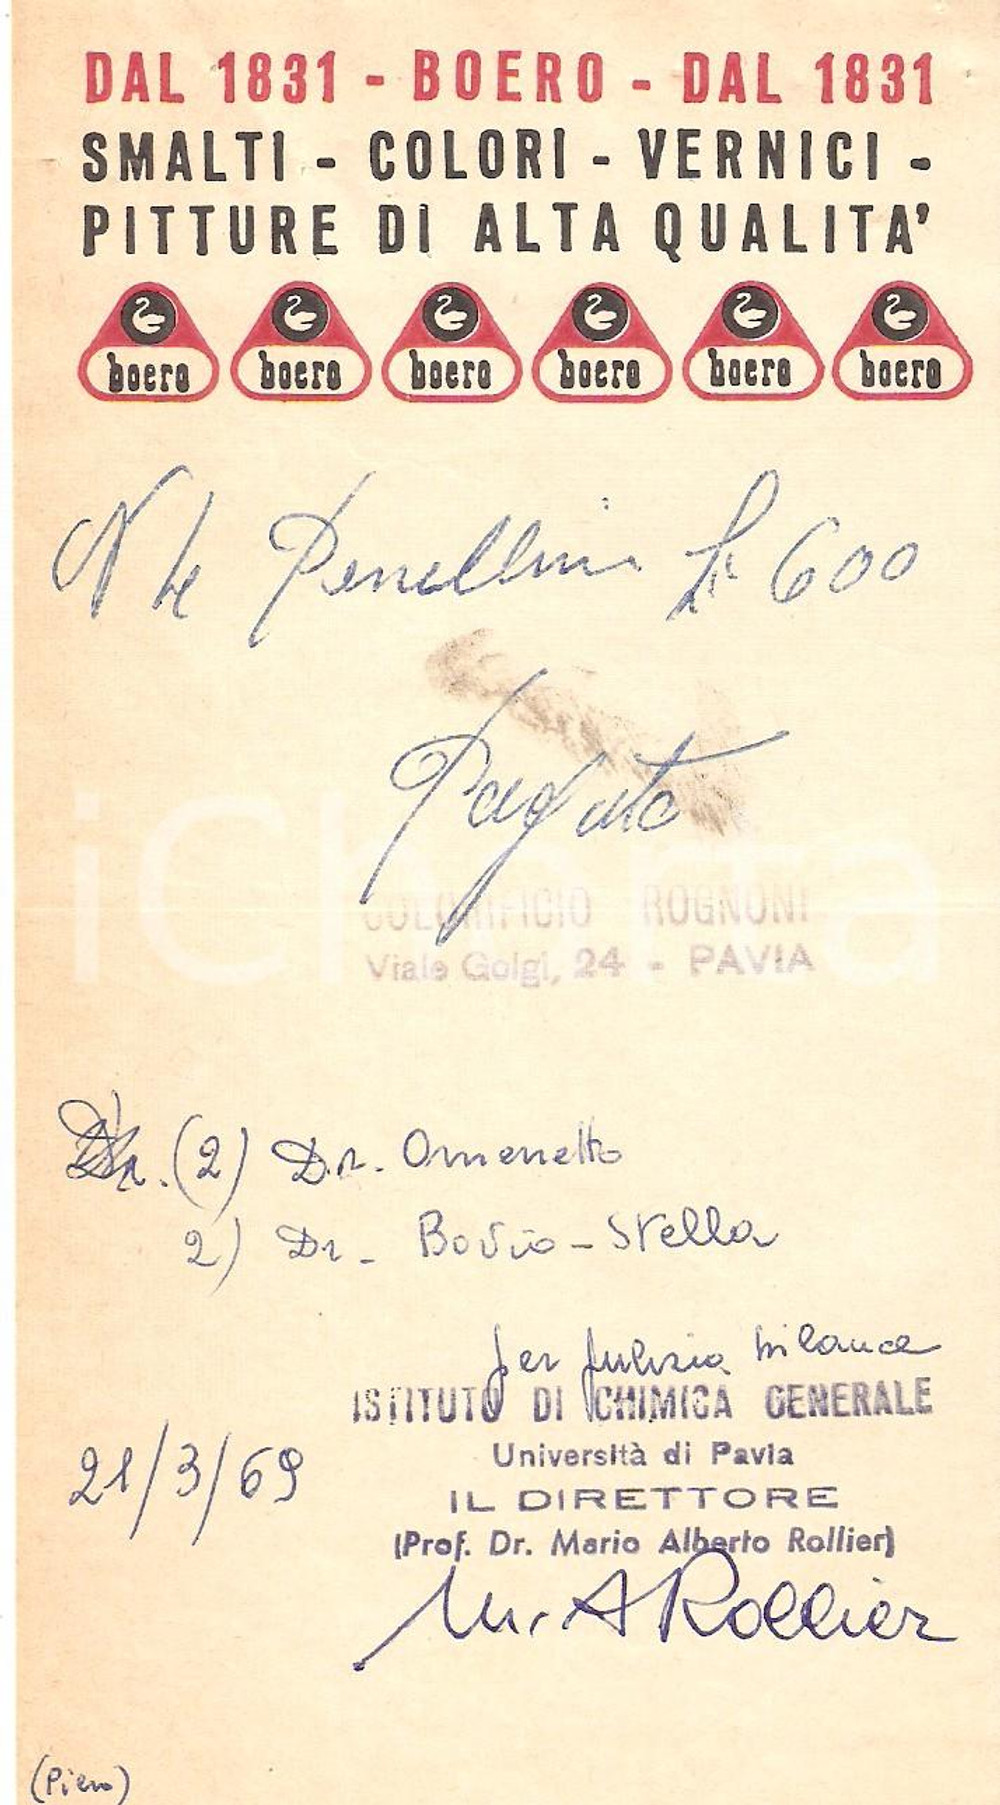 DAL 1831 - BOERO - DAL 1831
SMALTI - COLORI - VERNICI -
PITTURE DI ALTA QUALITA'
boero boero boero boero boero boero
N 4 Penellini £. 600
Pagato
COLORIFICIO ROGNONI
Viale Golgi, 24 - PAVIA
iCharta
Dr. (2) Dr. Omenetto
2) Dr - Bovio-Stella
per pulizia bilance
ISTITUTO DI CHIMICA GENERALE
Università di Pavia
21/3/69
IL DIRETTORE
(Prof. Dr. Mario Alberto Rollier)
M. A Rollier
(Piero)